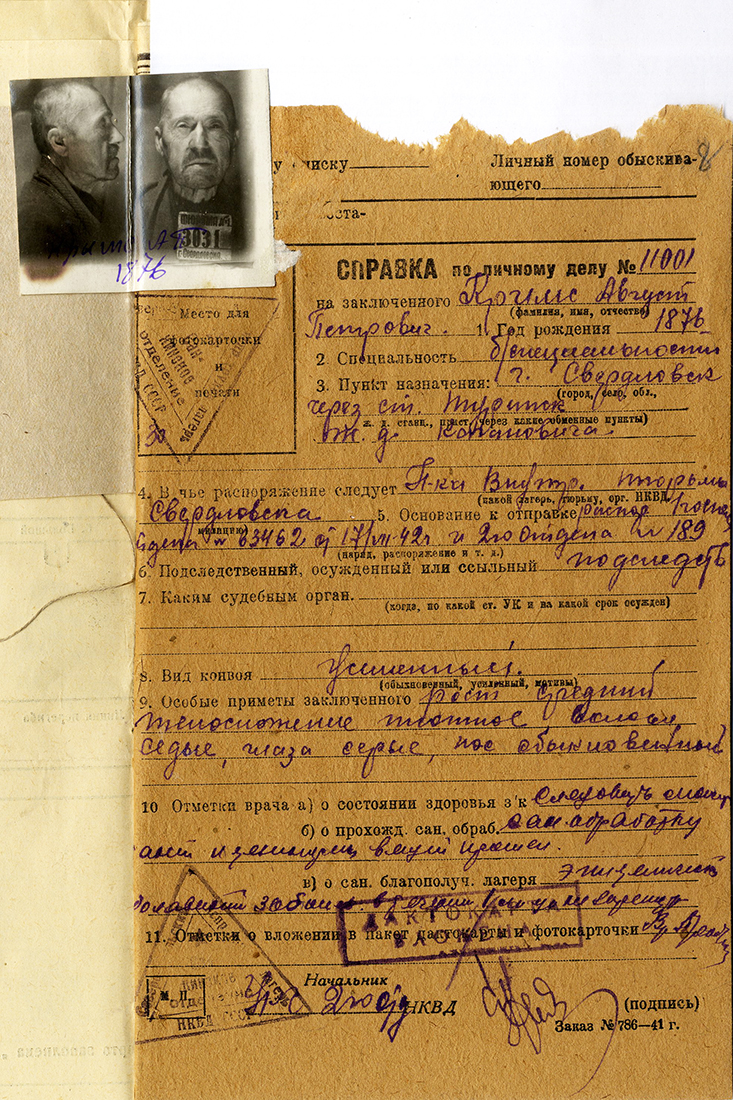 8
у списку
Личный номер обыскива-
ющего
3031
А П
1876
СПРАВКА по личному делу № 11001
на заключенного Август
(фамилия, имя, отчество)
Петрович. 1. Год рождения 1876
2. Специальность б/специальности
3. Пункт назначения: г. Свердловск
(город, село, обл.,
через ст. Туринск
ж. д. станц., прист., через какие обменные пункты)
ж. д. Кагановича.
Место для
фотокарточки
и
печати
4. В чье распоряжение следует Н-ка Внутр. тюрьмы
(какой лагерь, тюрьму, орг. НКВД,
Свердловска 5. Основание к отправке распор
милицию)
№ 63462 от 17/VII-42г и 2го отдела № 189
(наряд, распоряжение и т. д.)
6. Подследственный, осужденный или ссыльный подследств
7. Каким судебным орган.
(когда, по какой ст. УК и на какой срок осужден)
8. Вид конвоя усиленный.
(обыкновенный, усиленный, мотивы)
9. Особые приметы заключенного рост средний
телосложение плотное волосы
седые, глаза серые, нос обыкновенный
10 Отметки врача а) о состоянии здоровья з'к следовать может
б) о прохожд. сан. обраб. сан. обработку
и вещей прошел.
в) о сан. благополуч. лагеря
ДАКТОКАРТА
ВЛОЖЕНА
11. Отметки о вложении в пакет дактокарты и фотокарточки
М П
НКВД СССР
Начальник
2го отд НКВД
(подпись)
Заказ № 786—41 г.